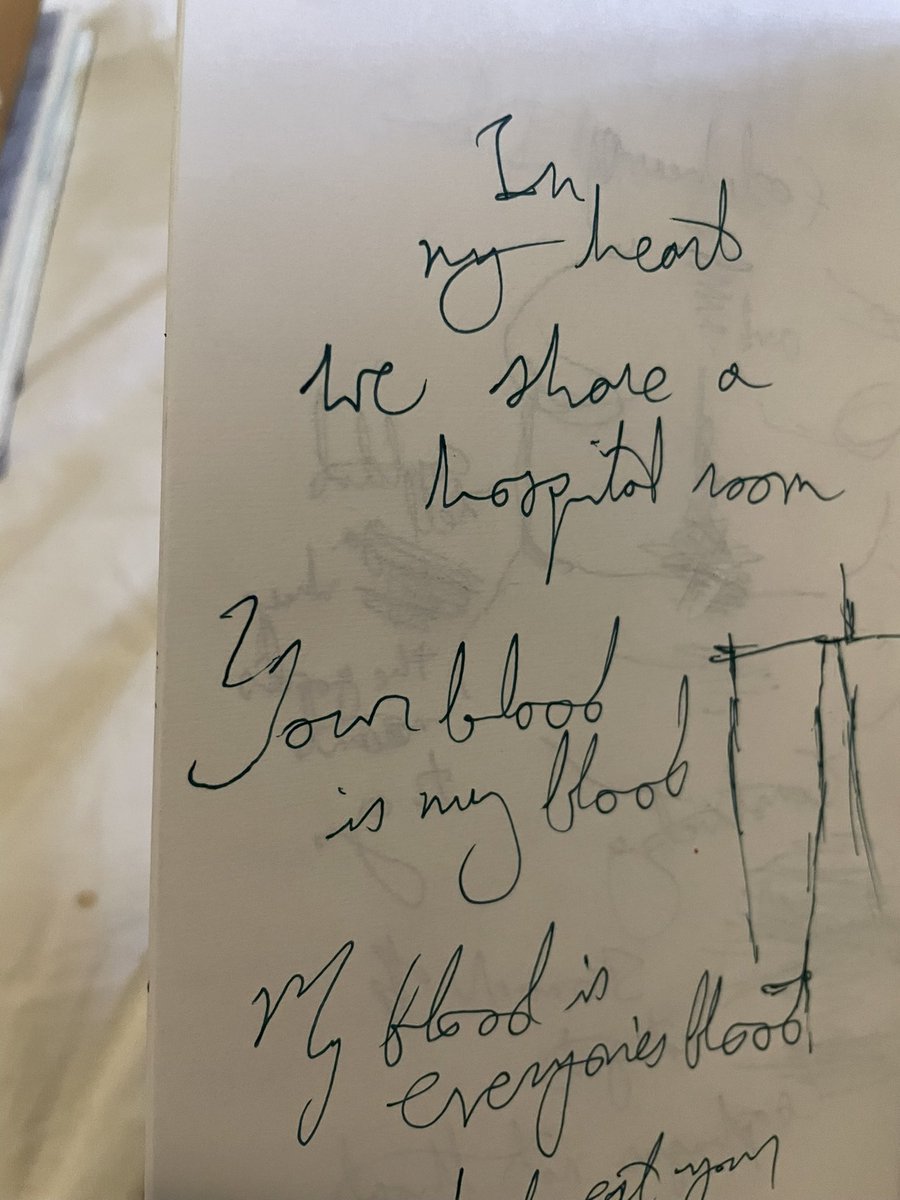 In
my heart
We share a
hospital room
Your blood
is my blood
My blood is
everyone's blood
eat your